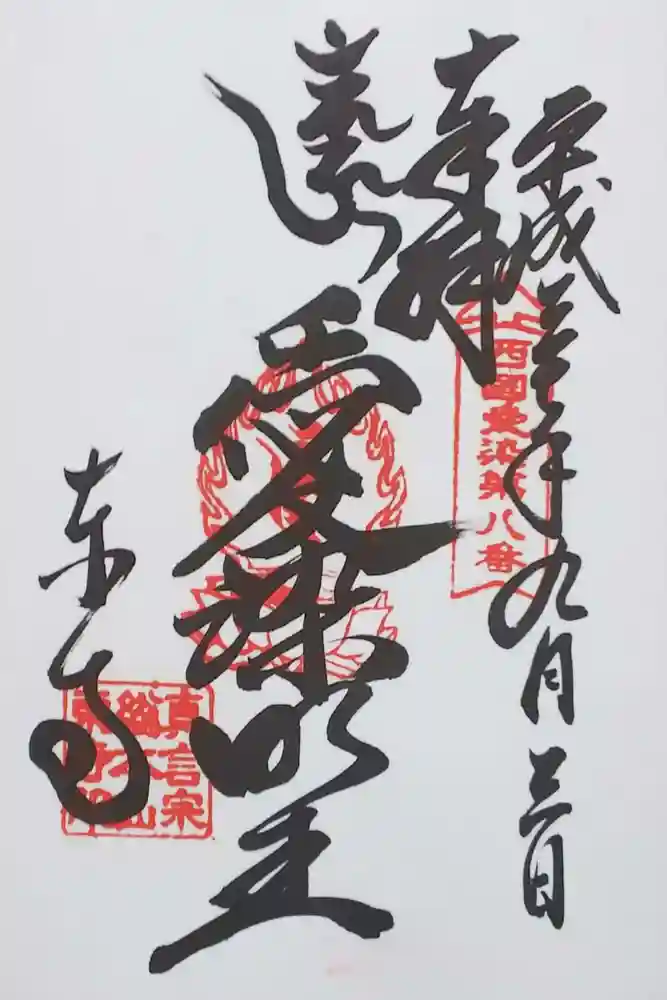 平成三十年九月三日
奉拝
西國愛染第八番
愛染明王
東寺
真言宗
總本山
東寺印